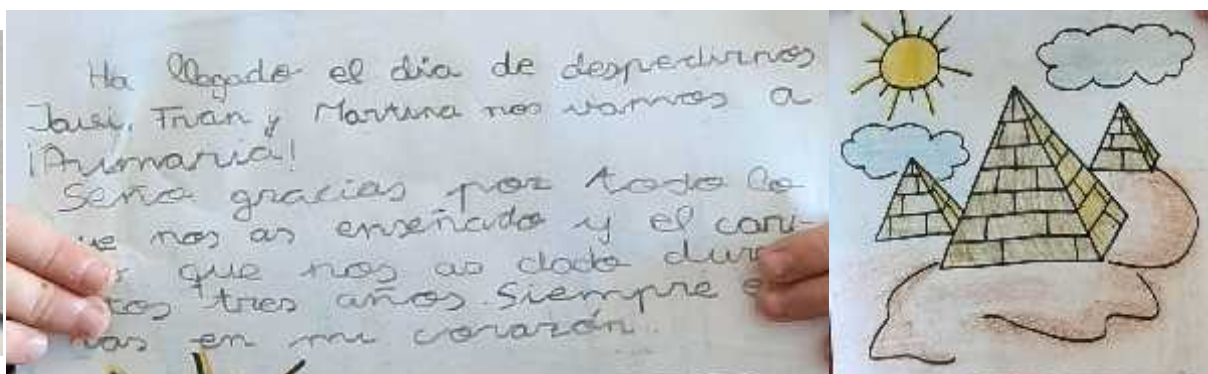 Ha llegado el día de despedirnos
Javi, Fran y Martina nos vamos a
¡Primaria!
Seño gracias por todo lo
ue nos as enseñado y el cari-
que nos as dado dur
tos tres años. Siempre e
as en mi corazón.